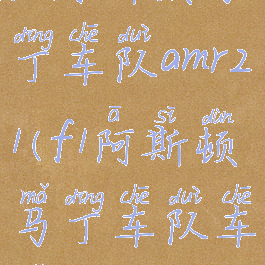 dīng chē duì
丁车队amr2
ā sī dùn
1(f1阿斯顿
mǎ dīng chē duì chē
马丁车队车